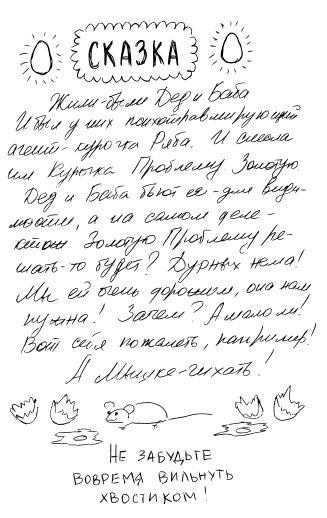 СКАЗКА
Жили-были Дед и Баба
И был у них психотравмирующий
агент-курочка Ряба. И снесла
им Курочка Проблему. Золотую.
Дед и Баба бьют ее - для види-
мости, а на самом деле -
кто ж Золотую Проблему ре-
шать-то будет? Дурных нема!
Мы ей очень дорожим, она нам
нужна! Зачем? А мало ли!
Вот себя пожалеть, например!
А Мышке-чихать!
НЕ ЗАБУДЬТЕ
ВОВРЕМЯ ВИЛЬНУТЬ
ХВОСТИКОМ!